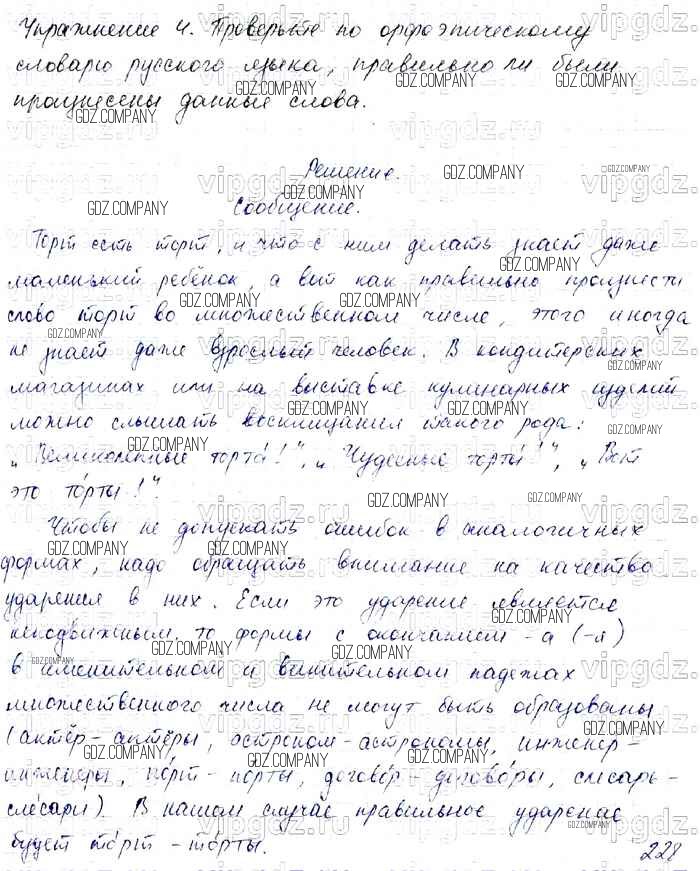 Упражнение 4. Проверьте по орфоэпическому
словарю русского языка, правильно ли были
произнесены данные слова.
Решение.
Сообщение.
Торт есть торт, и что с ним делать знает даже
маленький ребёнок, а вот как правильно произнести
слово торт во множественном числе, этого иногда
не знает даже взрослый человек. В кондитерских
магазинах или на выставке кулинарных изделий
можно слышать восклицания такого рода:
„Великолепные торта́!", „Чудесные торты́!", „Вот
это то́рты!".
Чтобы не допускать ошибок в аналогичных
формах, надо обращать внимание на качество
ударения в них. Если это ударение является
неподвижным, то формы с окончанием -а (-я)
в именительном и винительном падежах
множественного числа не могут быть образованы
(актёр - актёры, астроном - астрономы, инженер -
инженеры, по́рт - по́рты, догово́р - догово́ры, слесарь -
слесари). В нашем случае правильное ударение
будет то́рт - то́рты.
228